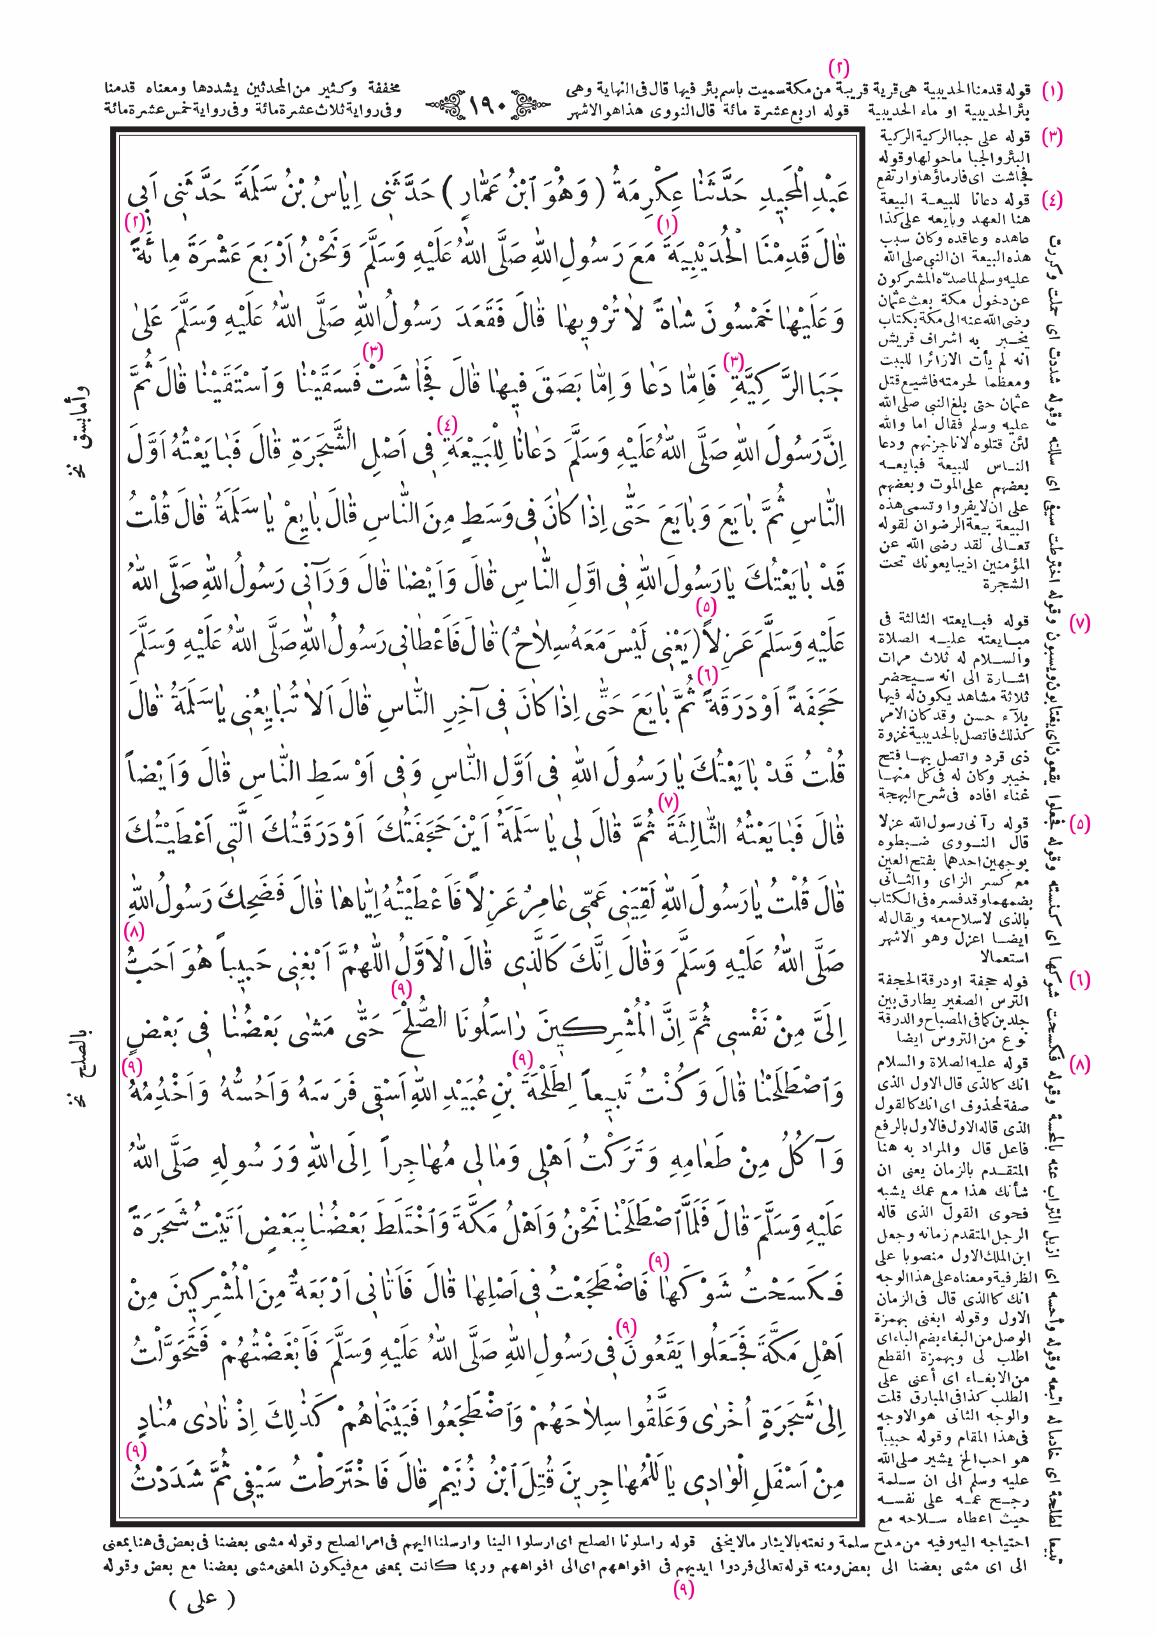 (٢)
(١) قوله قدمنا الحديبية هى قرية قريبة من مكة سميت باسم بئر فيها قال فى النهاية وهى ١٩٠ مخففة وكثير من المحدثين يشددها ومعناه قدمنا
بئر الحديبية او ماء الحديبية قوله اربع عشرة مائة قال النووى هذا هو الاشهر وفى رواية ثلاث عشرة مائة وفى رواية خمس عشرة مائة
عَبْدِالْمَجِيدِ حَدَّثَنَا عِكْرِمَةُ ( وَهُوَ ابْنُ عَمَّارٍ ) حَدَّثَنِى اِيَاسُ بْنُ سَلَمَةَ حَدَّثَنِى اَبِى
(١) (٢)
قَالَ قَدِمْنَا الْحُدَيْبِيَةَ مَعَ رَسُولِ اللّٰهِ صَلَّى اللّٰهُ عَلَيْهِ وَسَلَّمَ وَنَحْنُ اَرْبَعَ عَشْرَةَ مِائَةً
وَعَلَيْهَا خَمْسُونَ شَاةً لَا تُرْوِيهَا قَالَ فَقَعَدَ رَسُولُ اللّٰهِ صَلَّى اللّٰهُ عَلَيْهِ وَسَلَّمَ عَلَىٰ
(٣) (٣)
جَبَا الرَّكِيَّةِ فَاِمَّا دَعَا وَاِمَّا بَصَقَ فِيهَا قَالَ فَجَاشَتْ فَسَقَيْنَا وَاسْتَقَيْنَا قَالَ ثُمَّ
(٤)
اِنَّ رَسُولَ اللّٰهِ صَلَّى اللّٰهُ عَلَيْهِ وَسَلَّمَ دَعَانَا لِلْبَيْعَةِ فِى اَصْلِ الشَّجَرَةِ قَالَ فَبَايَعْتُهُ اَوَّلَ
النَّاسِ ثُمَّ بَايَعَ وَبَايَعَ حَتَّى اِذَا كَانَ فِى وَسَطٍ مِنَ النَّاسِ قَالَ بَايِعْ يَا سَلَمَةُ قَالَ قُلْتُ
قَدْ بَايَعْتُكَ يَا رَسُولَ اللّٰهِ فِى اَوَّلِ النَّاسِ قَالَ وَاَيْضًا قَالَ وَرَآنِى رَسُولُ اللّٰهِ صَلَّى اللّٰهُ
(٥)
عَلَيْهِ وَسَلَّمَ عَزِلاً (يَعْنِى لَيْسَ مَعَهُ سِلَاحٌ) قَالَ فَاَعْطَانِى رَسُولُ اللّٰهِ صَلَّى اللّٰهُ عَلَيْهِ وَسَلَّمَ
(٦)
حَجَفَةً اَوْ دَرَقَةً ثُمَّ بَايَعَ حَتَّى اِذَا كَانَ فِى آخِرِ النَّاسِ قَالَ اَلَا تُبَايِعُنِى يَا سَلَمَةُ قَالَ
قُلْتُ قَدْ بَايَعْتُكَ يَا رَسُولَ اللّٰهِ فِى اَوَّلِ النَّاسِ وَفِى اَوْسَطِ النَّاسِ قَالَ وَاَيْضاً
(٧)
قَالَ فَبَايَعْتُهُ الثَّالِثَةَ ثُمَّ قَالَ لِى يَا سَلَمَةُ اَيْنَ حَجَفَتُكَ اَوْ دَرَقَتُكَ الَّتِى اَعْطَيْتُكَ
قَالَ قُلْتُ يَا رَسُولَ اللّٰهِ لَقِيَنِى عَمِّى عَامِرٌ عَزِلاً فَاَعْطَيْتُهُ اِيَّاهَا قَالَ فَضَحِكَ رَسُولُ اللّٰهِ
(٨)
صَلَّى اللّٰهُ عَلَيْهِ وَسَلَّمَ وَقَالَ اِنَّكَ كَالَّذِى قَالَ الْاَوَّلُ اللّٰهُمَّ اَبْغِنِى حَبِيباً هُوَ اَحَبُّ
(٩)
اِلَىَّ مِنْ نَفْسِى ثُمَّ اِنَّ الْمُشْرِكِينَ رَاسَلُونَا الصُّلْحَ حَتَّى مَشَى بَعْضُنَا فِى بَعْضٍ
(٩) (٩)
وَاصْطَلَحْنَا قَالَ وَكُنْتُ تَبِيعاً لِطَلْحَةَ بْنِ عُبَيْدِ اللّٰهِ اَسْقِى فَرَسَهُ وَاَحُسُّهُ وَاَخْدُمُهُ
وَآكُلُ مِنْ طَعَامِهِ وَتَرَكْتُ اَهْلِى وَمَالِى مُهَاجِراً اِلَى اللّٰهِ وَرَسُولِهِ صَلَّى اللّٰهُ
عَلَيْهِ وَسَلَّمَ قَالَ فَلَمَّا اصْطَلَحْنَا نَحْنُ وَاَهْلُ مَكَّةَ وَاخْتَلَطَ بَعْضُنَا بِبَعْضٍ اَتَيْتُ شَجَرَةً
(٩)
فَكَسَحْتُ شَوْكَهَا فَاضْطَجَعْتُ فِى اَصْلِهَا قَالَ فَاَتَانِى اَرْبَعَةٌ مِنَ الْمُشْرِكِينَ مِنْ
(٩)
اَهْلِ مَكَّةَ فَجَعَلُوا يَقَعُونَ فِى رَسُولِ اللّٰهِ صَلَّى اللّٰهُ عَلَيْهِ وَسَلَّمَ فَاَبْغَضْتُهُمْ فَتَحَوَّلْتُ
اِلَىٰ شَجَرَةٍ اُخْرَى وَعَلَّقُوا سِلَاحَهُمْ وَاضْطَجَعُوا فَبَيْنَمَا هُمْ كَذٰلِكَ اِذْ نَادَى مُنَادٍ
(٩)
مِنْ اَسْفَلِ الْوَادِى يَا لَلْمُهَاجِرِينَ قُتِلَ ابْنُ زُنَيْمٍ قَالَ فَاخْتَرَطْتُ سَيْفِى ثُمَّ شَدَدْتُ
وأما بسق نخ
بالصلح نخ
(٣) قوله على جبا الركية الركية
البئر والجبا ما حولها وقوله
فجاشت اى فار ماؤها وارتفع
(٤) قوله دعانا للبيعة البيعة
هنا العهد وبايعه على كذا
عاهده وعاقده وكان سبب
هذه البيعة ان النبى صلى الله
عليه وسلم لما صده المشركون
عن دخول مكة بعث عثمان
رضى الله عنه الى مكة بكتاب
يخبر به اشراف قريش
انه لم يأت الا زائرا للبيت
ومعظما لحرمته فاشيع قتل
عثمان حتى بلغ النبى صلى الله
عليه وسلم فقال اما والله
لئن قتلوه لاناجزنهم ودعا
الناس للبيعة فبايعه
بعضهم على الموت وبعضهم
على ان لا يفروا وتسمى هذه
البيعة بيعة الرضوان لقوله
تعالى لقد رضى الله عن
المؤمنين اذ يبايعونك تحت
الشجرة
(٧) قوله فبايعته الثالثة فى
مبايعته عليه الصلاة
والسلام له ثلاث مرات
اشارة الى انه سيحضر
ثلاثة مشاهد يكون له فيها
بلآء حسن وقد كان الامر
كذلك فاتصل بالحديبية غزوة
ذى قرد واتصل بها فتح
خيبر وكان له فى كل منها
غناء افاده فى شرح البهجة
(٥) قوله رآنى رسول الله عزلا
قال النووى ضبطوه
بوجهين احدهما بفتح العين
مع كسر الزاى والثانى
بضمهما وقد فسره فى الكتاب
بالذى لا سلاح معه ويقال له
ايضا اعزل وهو الاشهر
استعمالا
(٦) قوله حجفة او درقة الحجفة
الترس الصغير يطارق بين
جلدين كما فى المصباح والدرقة
نوع من التروس ايضا
(٨) قوله عليه الصلاة والسلام
انك كالذى قال الاول الذى
صفة لمحذوف اى انك كالقول
الذى قاله الاول فالاول بالرفع
فاعل قال والمراد به هنا
المتقدم بالزمان يعنى ان
شأنك هذا مع عمك يشبه
فحوى القول الذى قاله
الرجل المتقدم زمانه وجعل
ابن الملك الاول منصوبا على
الظرفية ومعناه على هذا الوجه
انك كالذى قال فى الزمان
الاول وقوله ابغنى بهمزة
الوصل من البغاء بضم الباء اى
اطلب لى وبهمزة القطع
من الابغاء اى أعنى على
الطلب كذا فى المبارق قلت
والوجه الثانى هو الاوجه
فى هذا المقام وقوله حبيباً
هو احب الخ يشير صلى الله
عليه وسلم الى ان سلمة
رجح عمه على نفسه
حيث اعطاه سلاحه مع
احتياجه اليه وفيه من مدح سلمة ونعته بالايثار مالا يخفى قوله راسلونا الصلح اى ارسلوا الينا وارسلنا اليهم فى امر الصلح وقوله مشى بعضنا فى بعض فى هنا بمعنى
الى اى مشى بعضنا الى بعض ومنه قوله تعالى فردوا ايديهم فى افواههم اى الى افواههم وربما كانت بمعنى مع فيكون المعنى مشى بعضنا مع بعض وقوله
(٩)
( على )
تبيعا لطلحة اى خادما له أتبعه وقوله وأحسه اى ازيل التراب عنه بالمحسة وقوله فكسحت شوكها اى كنسته وقوله فجعلوا يقعون اى يغتابون ويسبون وقوله اخترطت سيفى اى سللته وقوله شددت اى حملت وكررت